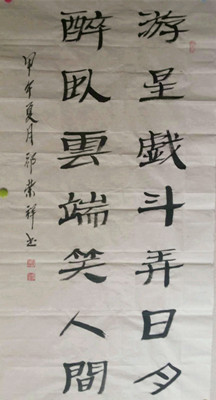 游星戯斗弄日月
醉臥雲端笑人間
甲午夏月祁崇祥书